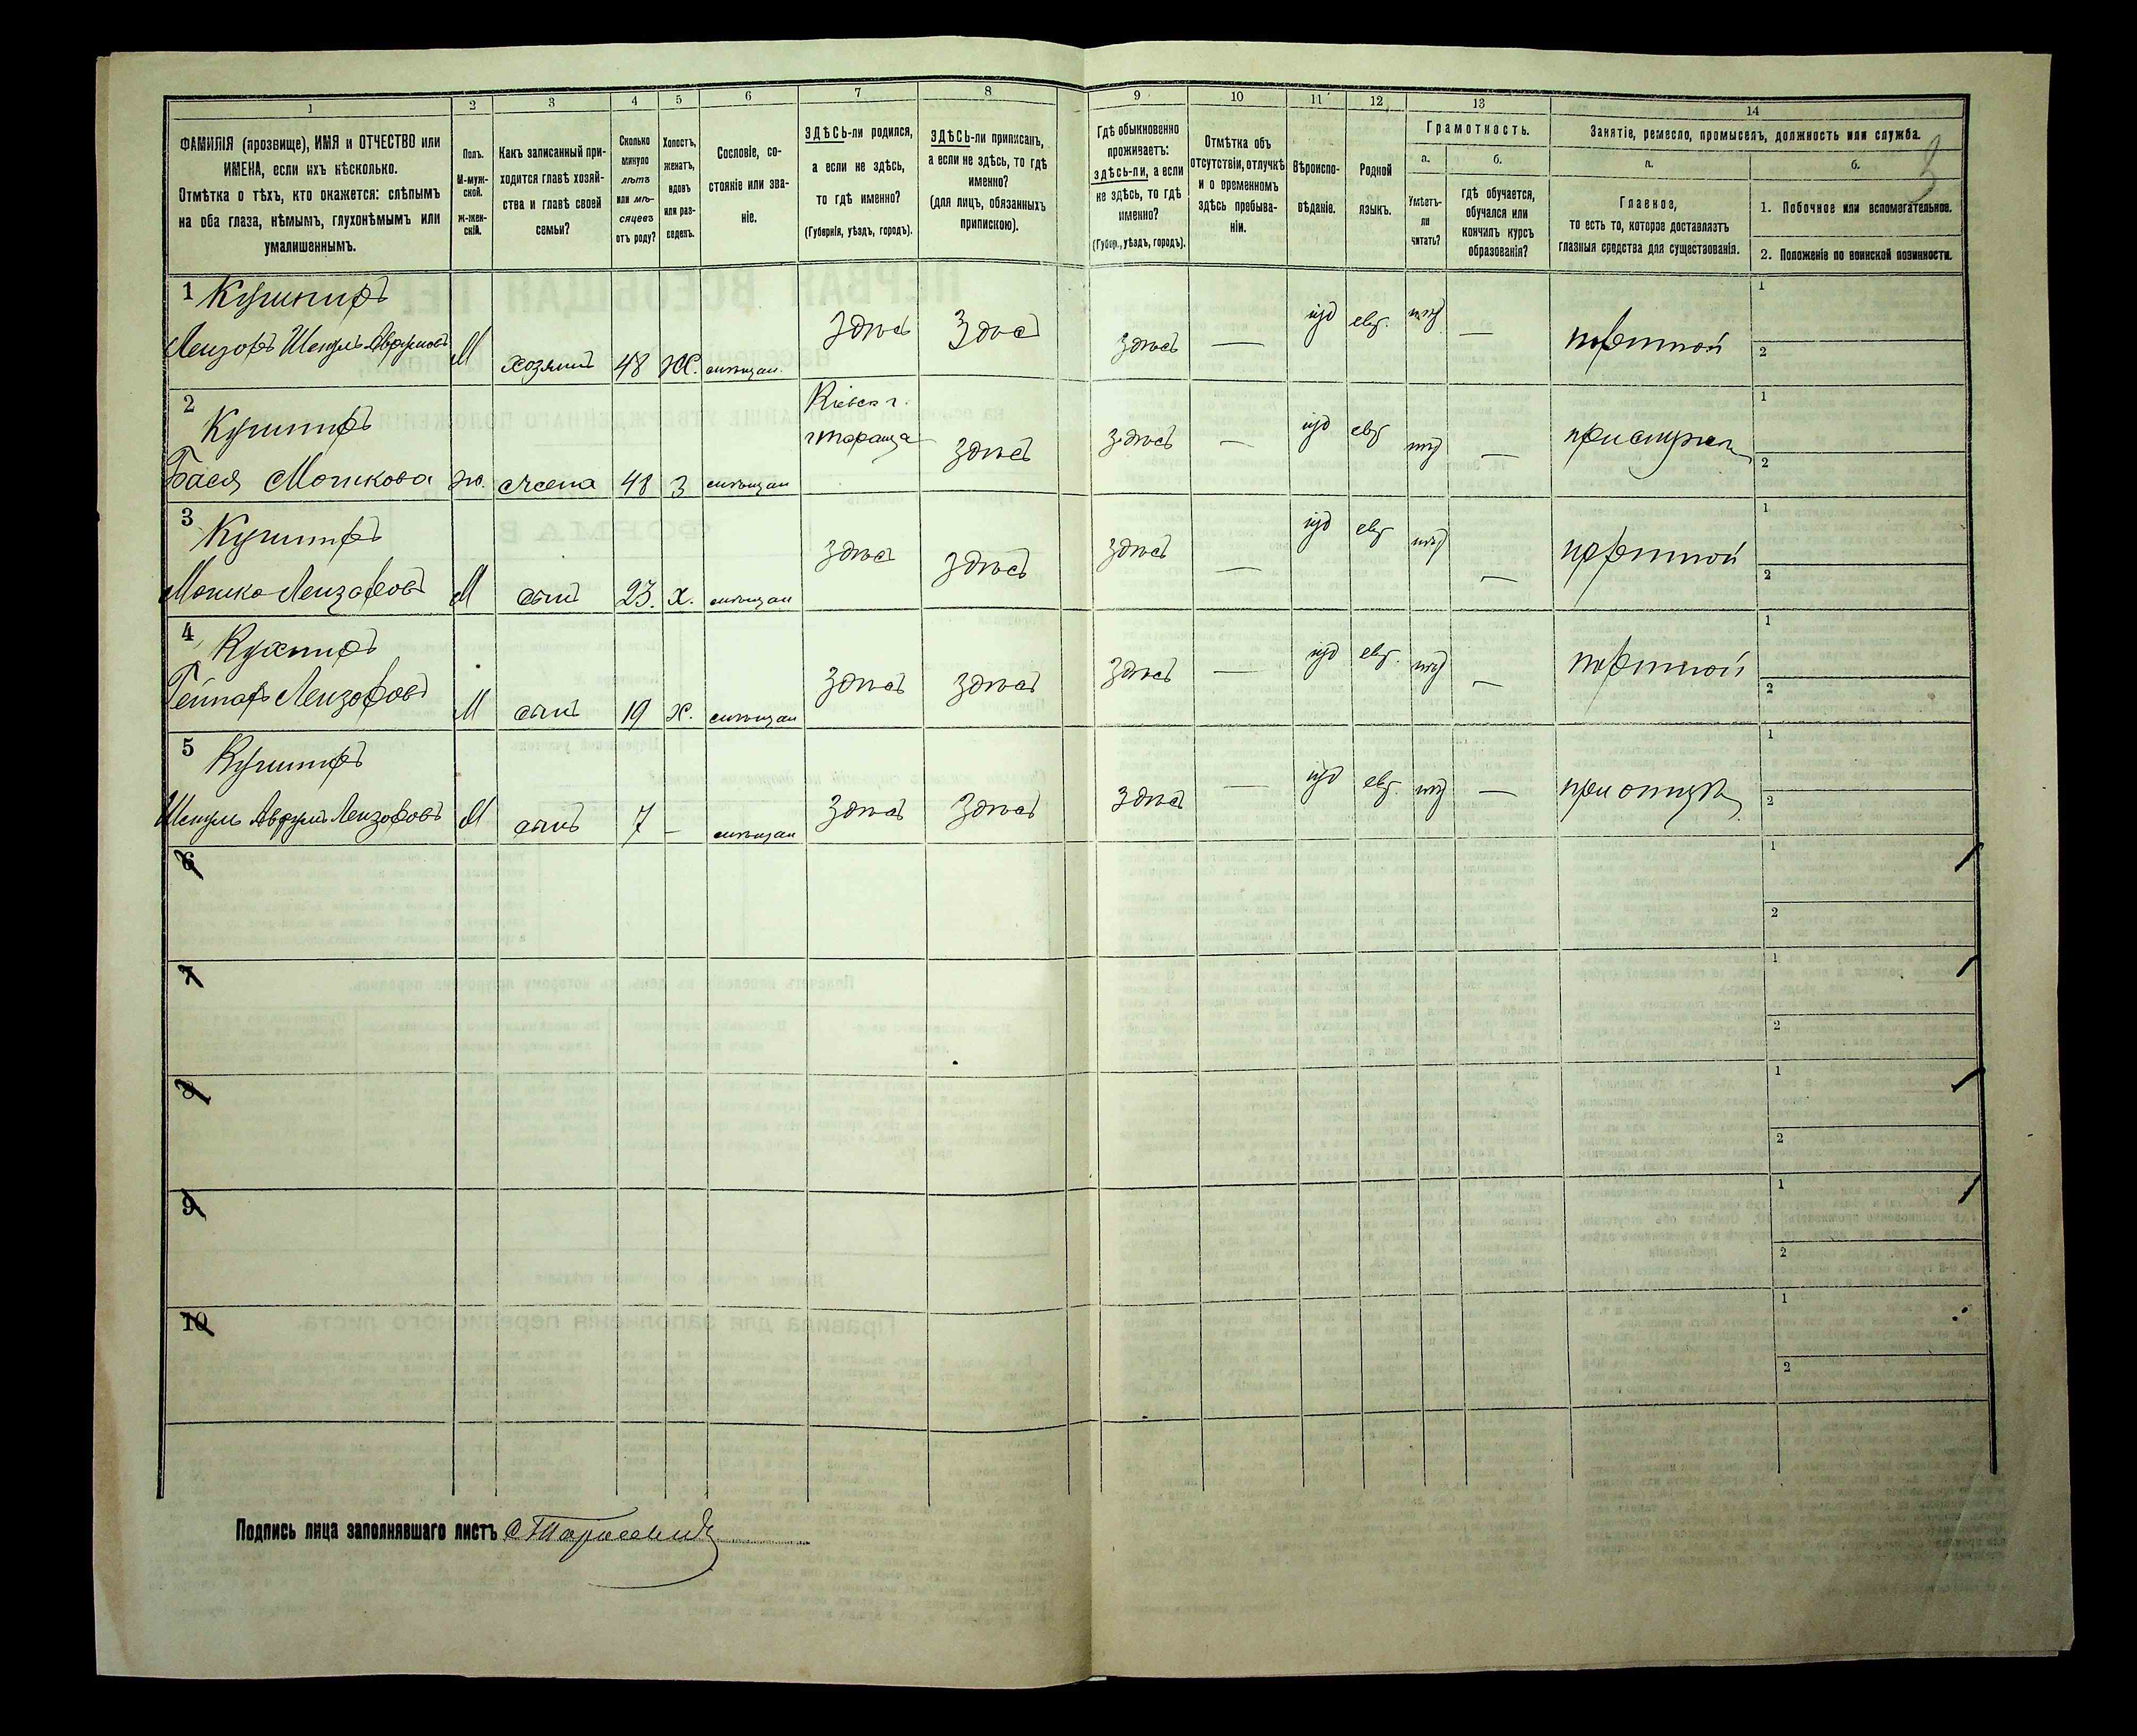 1
2
3
4
5
6
7
8
9
10
11
12
13
14
ФАМИЛІЯ (прозвище), ИМЯ и ОТЧЕСТВО или
ИМЕНА, если ихъ нѣсколько.
Отмѣтка о тѣхъ, кто окажется: слѣпымъ
на оба глаза, нѣмымъ, глухонѣмымъ или
умалишеннымъ.
Полъ.
М-муж-
ской.
Ж-жен-
скій.
Какъ записанный при-
ходится главѣ хозяй-
ства и главѣ своей
семьи?
Сколько
минуло
лѣтъ
или мѣ-
сяцевъ
отъ роду?
Холостъ,
женатъ,
вдовъ
или раз-
веденъ.
Сословіе, со-
стояніе или зва-
ніе.
ЗДѢСЬ-ли родился,
а если не здѣсь,
то гдѣ именно?
(Губернія, уѣздъ, городъ).
ЗДѢСЬ-ли приписанъ,
а если не здѣсь, то гдѣ
именно?
(для лицъ, обязанныхъ
припискою).
Гдѣ обыкновенно
проживаетъ:
здѣсь-ли, а если
не здѣсь, то гдѣ
именно?
(Губер., уѣздъ, городъ).
Отмѣтка объ
отсутствіи, отлучкѣ
и о временномъ
здѣсь пребыва-
ніи.
Вѣроиспо-
вѣданіе.
Родной
языкъ.
Грамотность.
а.
Умѣетъ-
ли
читать?
б.
гдѣ обучается,
обучался или
кончилъ курсъ
образованія?
Занятіе, ремесло, промыселъ, должность или служба.
а.
Главное,
то есть то, которое доставляетъ
главныя средства для существованія.
б.
1. Побочное или вспомогательное.
2. Положеніе по воинской повинности.
3
1 Кушниръ
Лейзоръ Шемуль Аврумовъ М хозяинъ 48 Ж. мѣщан. здѣсь здѣсь здѣсь — іуд евр. — портной 1 2
2 Кушниръ
Бася Мошкова ж. жена 48 З мѣщан Кіевск г. г Тараща здѣсь здѣсь — іуд евр — 1 2
3 Кушниръ
Мошко Лейзоровъ М сынъ 23. Х. мѣщан здѣсь здѣсь здѣсь — іуд евр — портной 1 2
4 Кушниръ
Лейзоровъ М сынъ 19 Х. мѣщан здѣсь здѣсь здѣсь — іуд евр. — портной 1 2
5 Кушниръ
Шемуль Аврумъ Лейзоровъ М сынъ 7 — мѣщан здѣсь здѣсь здѣсь — іуд евр. — при отцѣ 1 2
6 1 2
7 1 2
8 1 2
9 1 2
10 1 2
Подпись лица заполнявшаго листъ